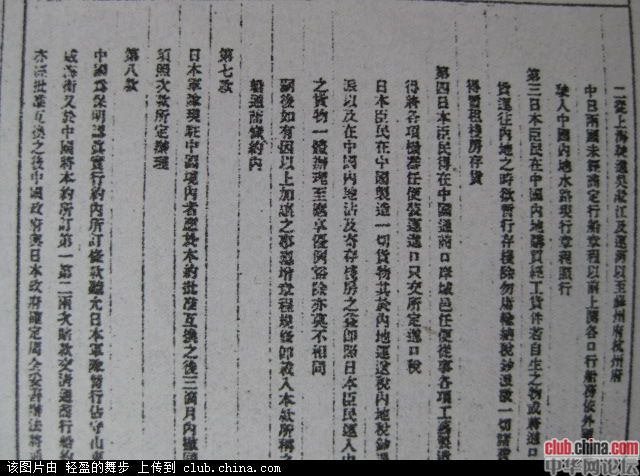 二從上海駛進吳淞江及運河以至蘇州府杭州府
中日兩國未經商定行船章程以前上開各口行船務依外國
駛入中國內地水路現行章程照行
第三日本臣民在中國內地購買經工貨件若自生之物或將進口
貨運往內地之時欲暫行存棧除勿庸輸納稅鈔派徵一切諸費
得暫租棧房存貨
第四日本臣民得在中國通商口岸城邑任便從事各項工藝製造
得將各項機器任便裝運進口只交所定進口稅
日本臣民在中國製造一切貨物其於內地運送稅內地稅鈔
派以及在中國內地沾及寄存棧房之益即照日本臣民運入中
之貨物一體辦理至應享優例豁除亦莫不相同
嗣後如有因以上加讓之事應增章程規條即載入本款所稱之
船通商條約內
第七款
日本軍隊現駐中國境內者應於本約批准互換之後三個月內撤回
須照次款所定辦理
第八款
中國為保明認真實行約內所訂條款聽允日本軍隊暫行佔守山
威海衛又於中國將本約所訂第一第二兩次賠款交清通商行船約
亦經批准互換之後中國政府與日本政府確定周全妥善辦法將通
club.china.com
中华网论坛
该图片由 轻盈的舞步 上传到 club.china.com